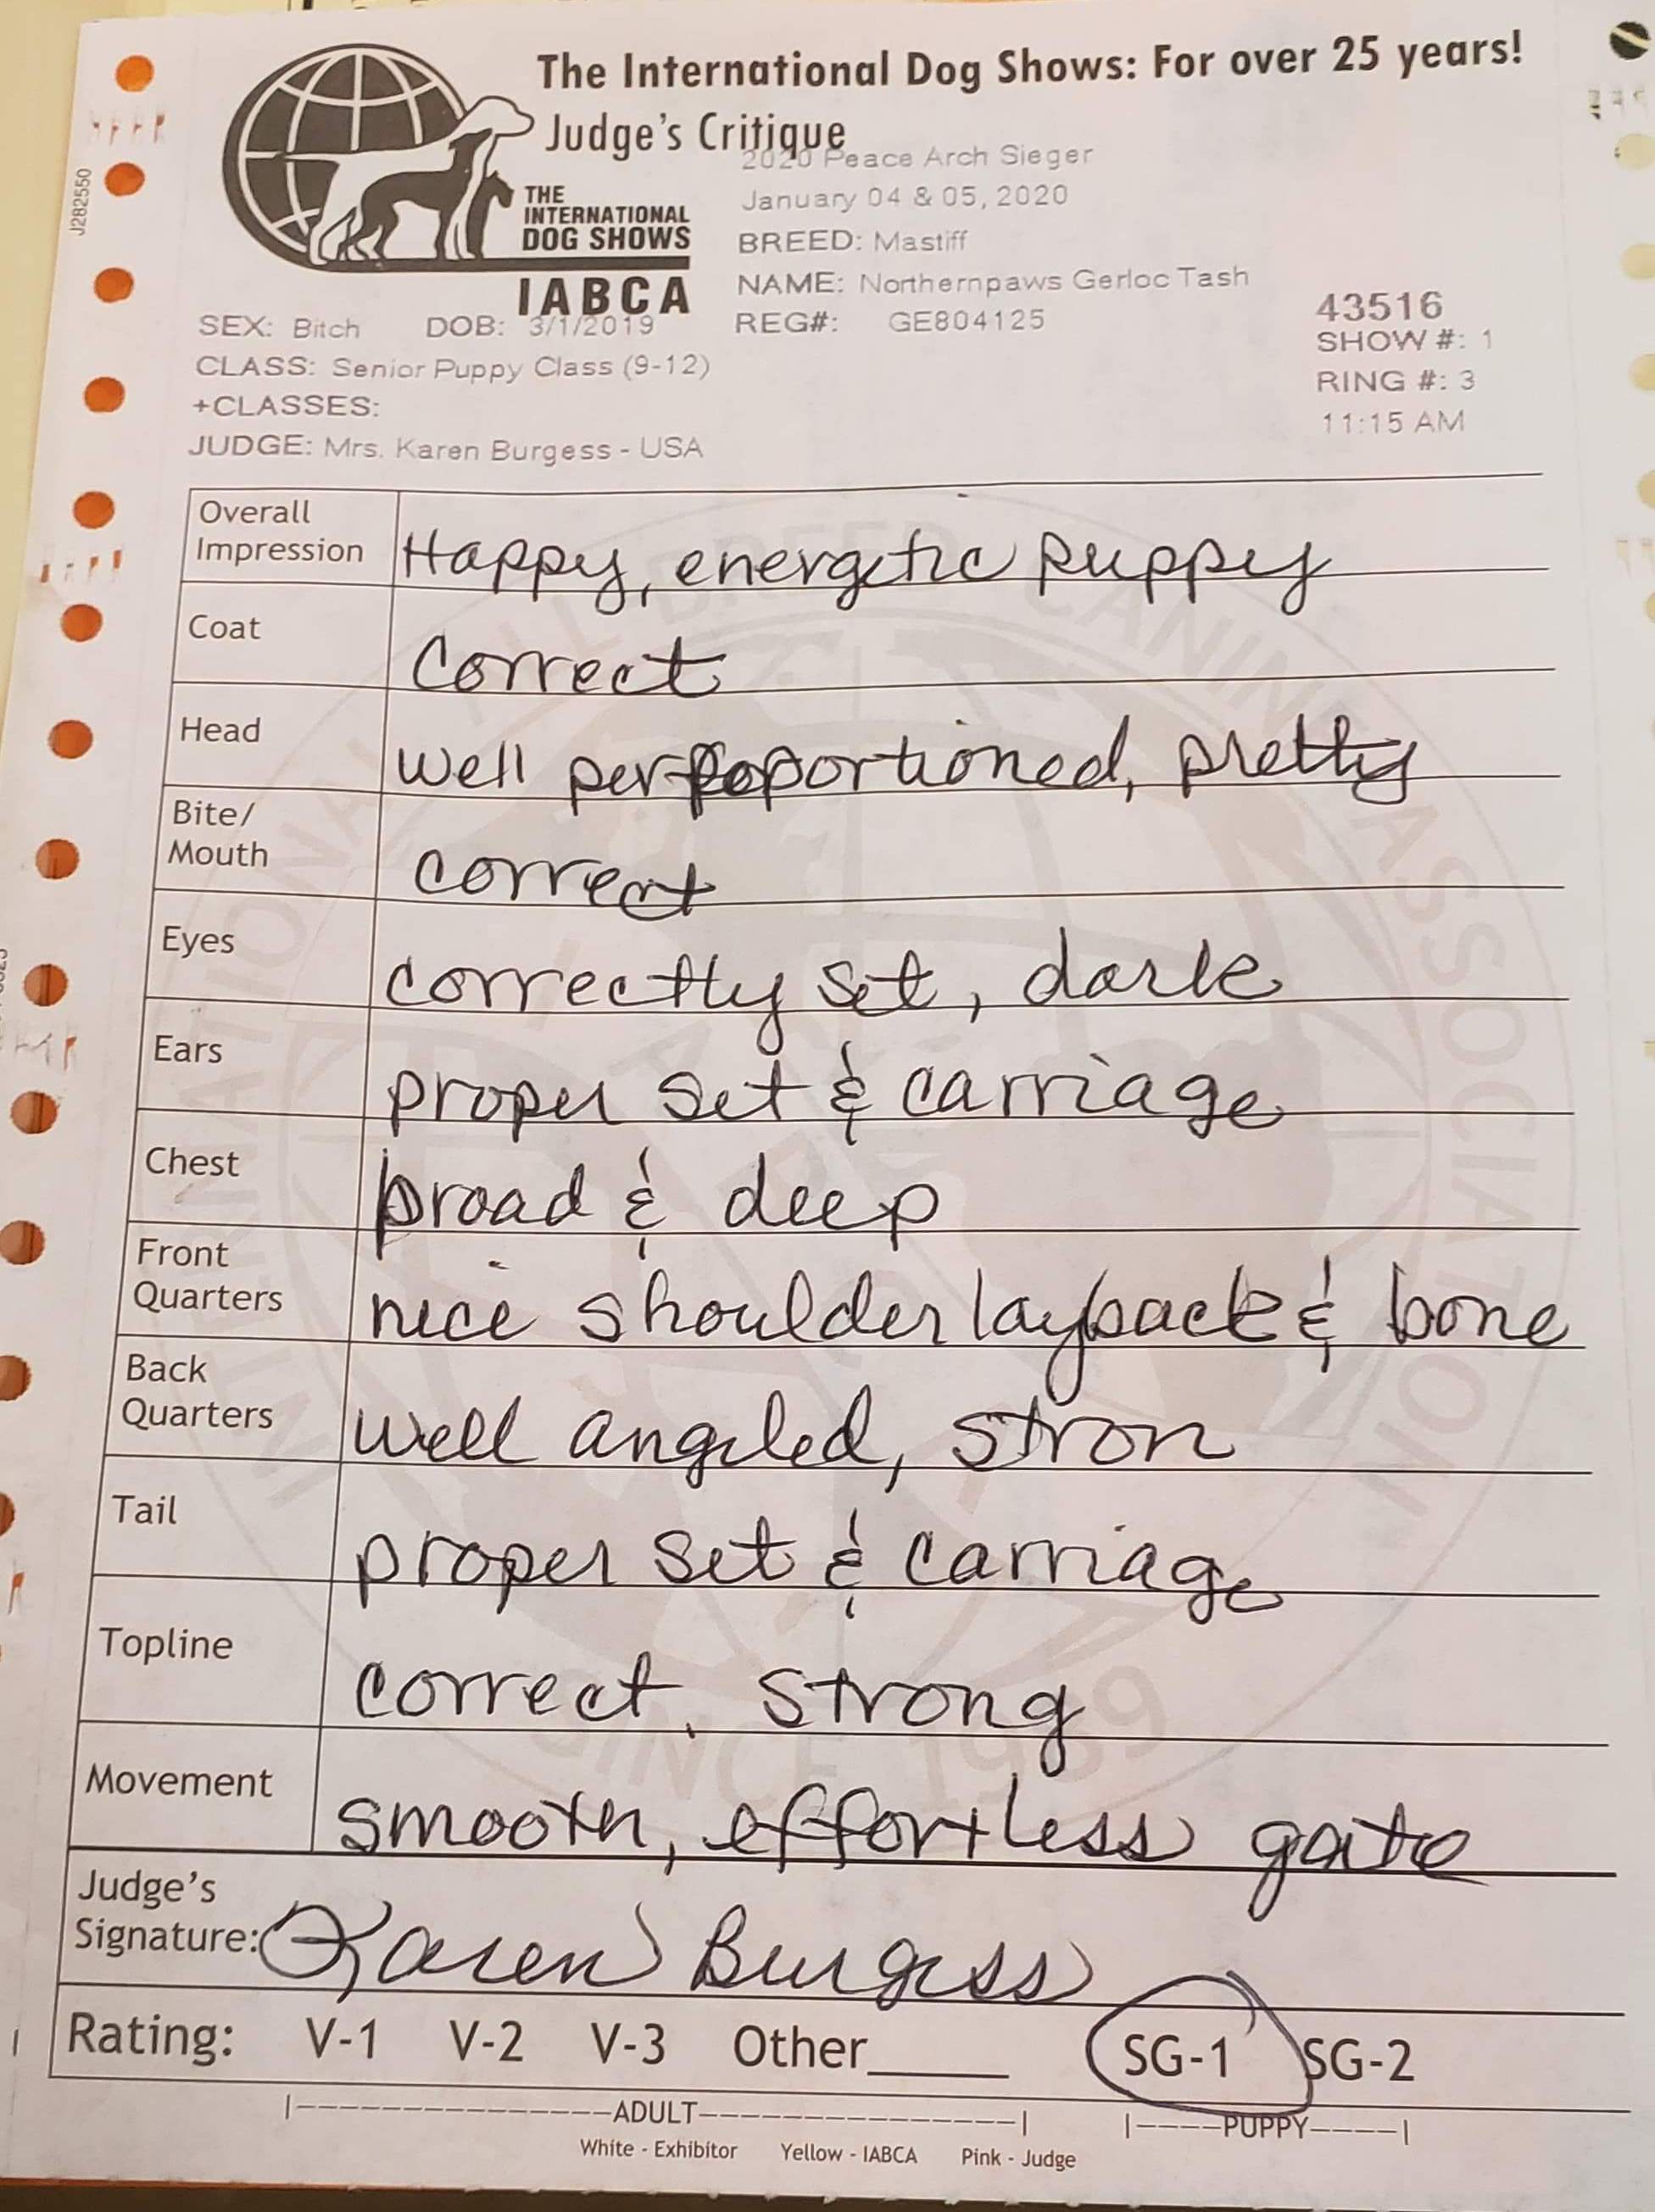 The International Dog Shows: For over 25 years!
Judge's Critique
2020 Peace Arch Sieger
THE
INTERNATIONAL
DOG SHOWS
IABCA
January 04 & 05, 2020
BREED: Mastiff
NAME: Northernpaws Gerloc Tash
REG#: GE804125
43516
SHOW #: 1
RING #: 3
11:15 AM
J282550
SEX: Bitch DOB: 3/1/2019
CLASS: Senior Puppy Class (9-12)
+CLASSES:
JUDGE: Mrs. Karen Burgess - USA
Overall
Impression
Happy, energetic puppy
Coat
Correct
Head
well perpoportioned, pretty
Bite/
Mouth
correct
Eyes
correctly set, dark
Ears
proper set & carriage
Chest
broad & deep
Front
Quarters
nice shoulder layback & bone
Back
Quarters
well angled, stron
Tail
proper set & carriage
Topline
correct, strong
Movement
smooth, effortless gate
Judge's
Signature:
Karen Burgess
Rating: V-1 V-2 V-3 Other____ SG-1 SG-2
|----------------ADULT----------------| |----PUPPY----|
White - Exhibitor Yellow - IABCA Pink - Judge
INTERNATIONAL ALL BREED CANINE ASSOCIATION
SINCE 1989